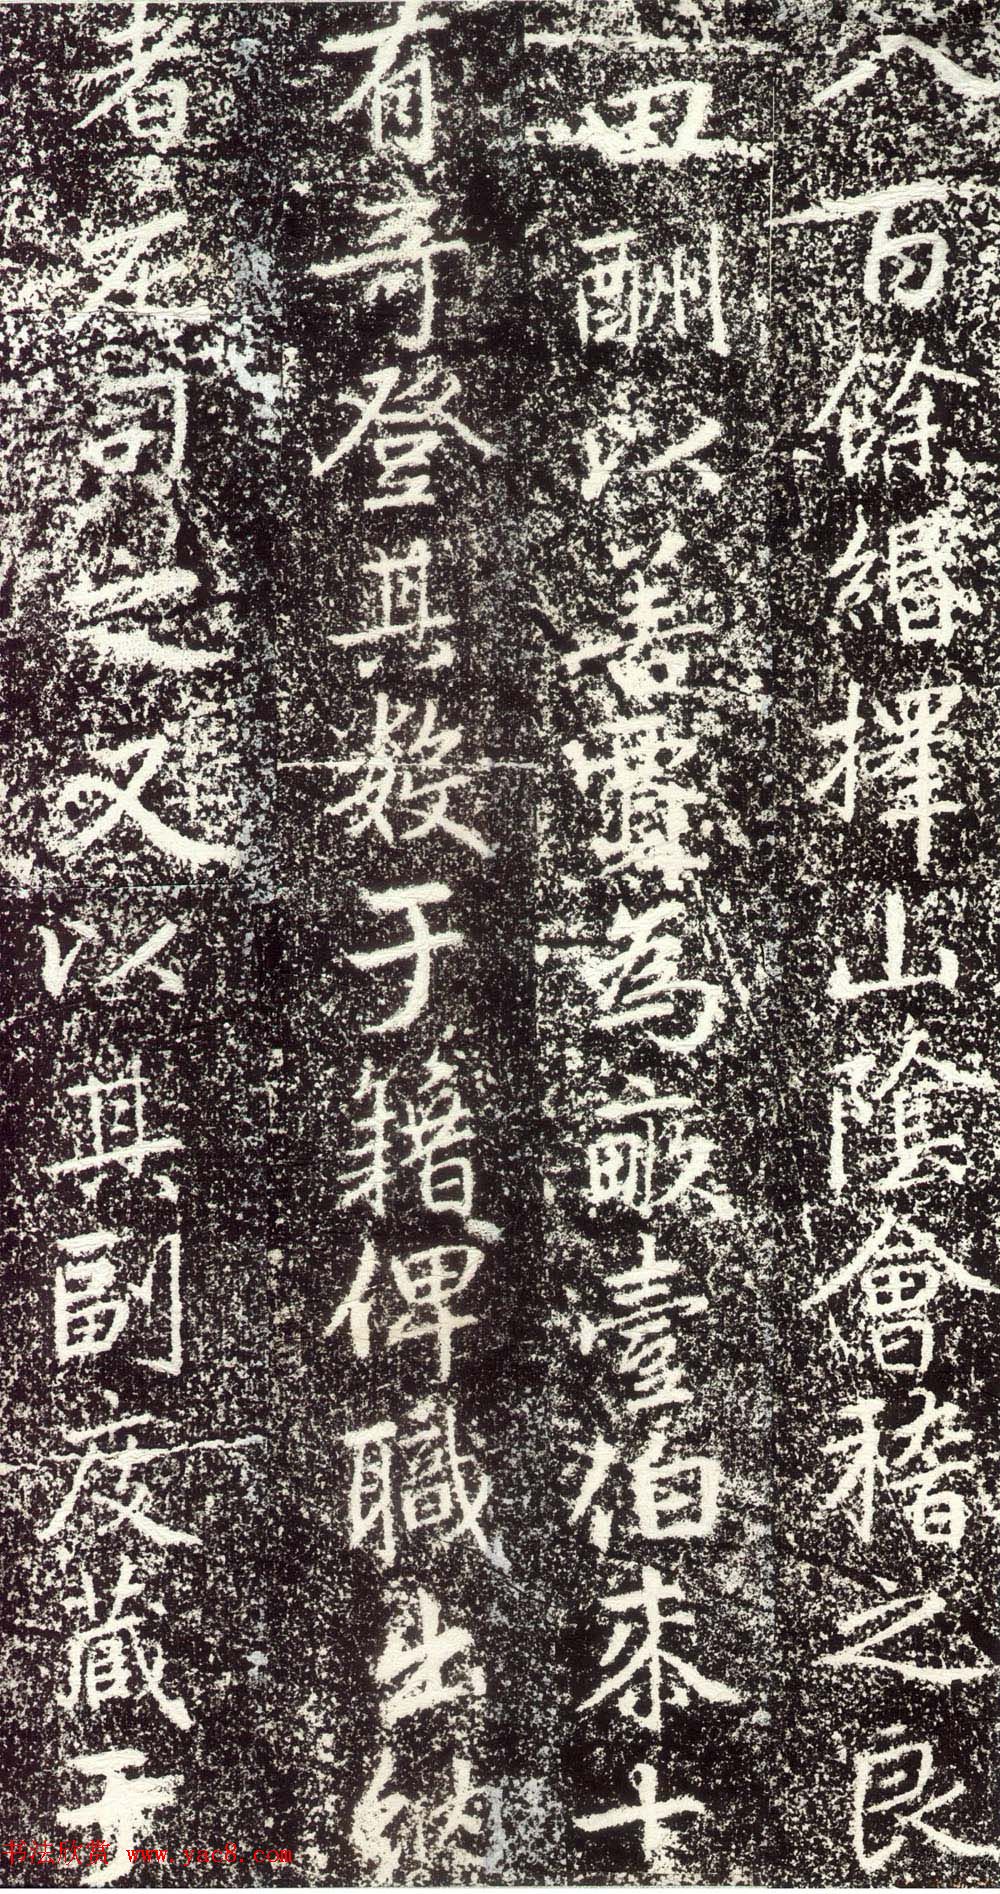 八百餘緡擇山陰會稽之良
田酬以善賈為畝壹伯末十
有奇登其數于籍俾職出納
者左司之又以其副庋藏于
书法欣赏 www.yac8.com